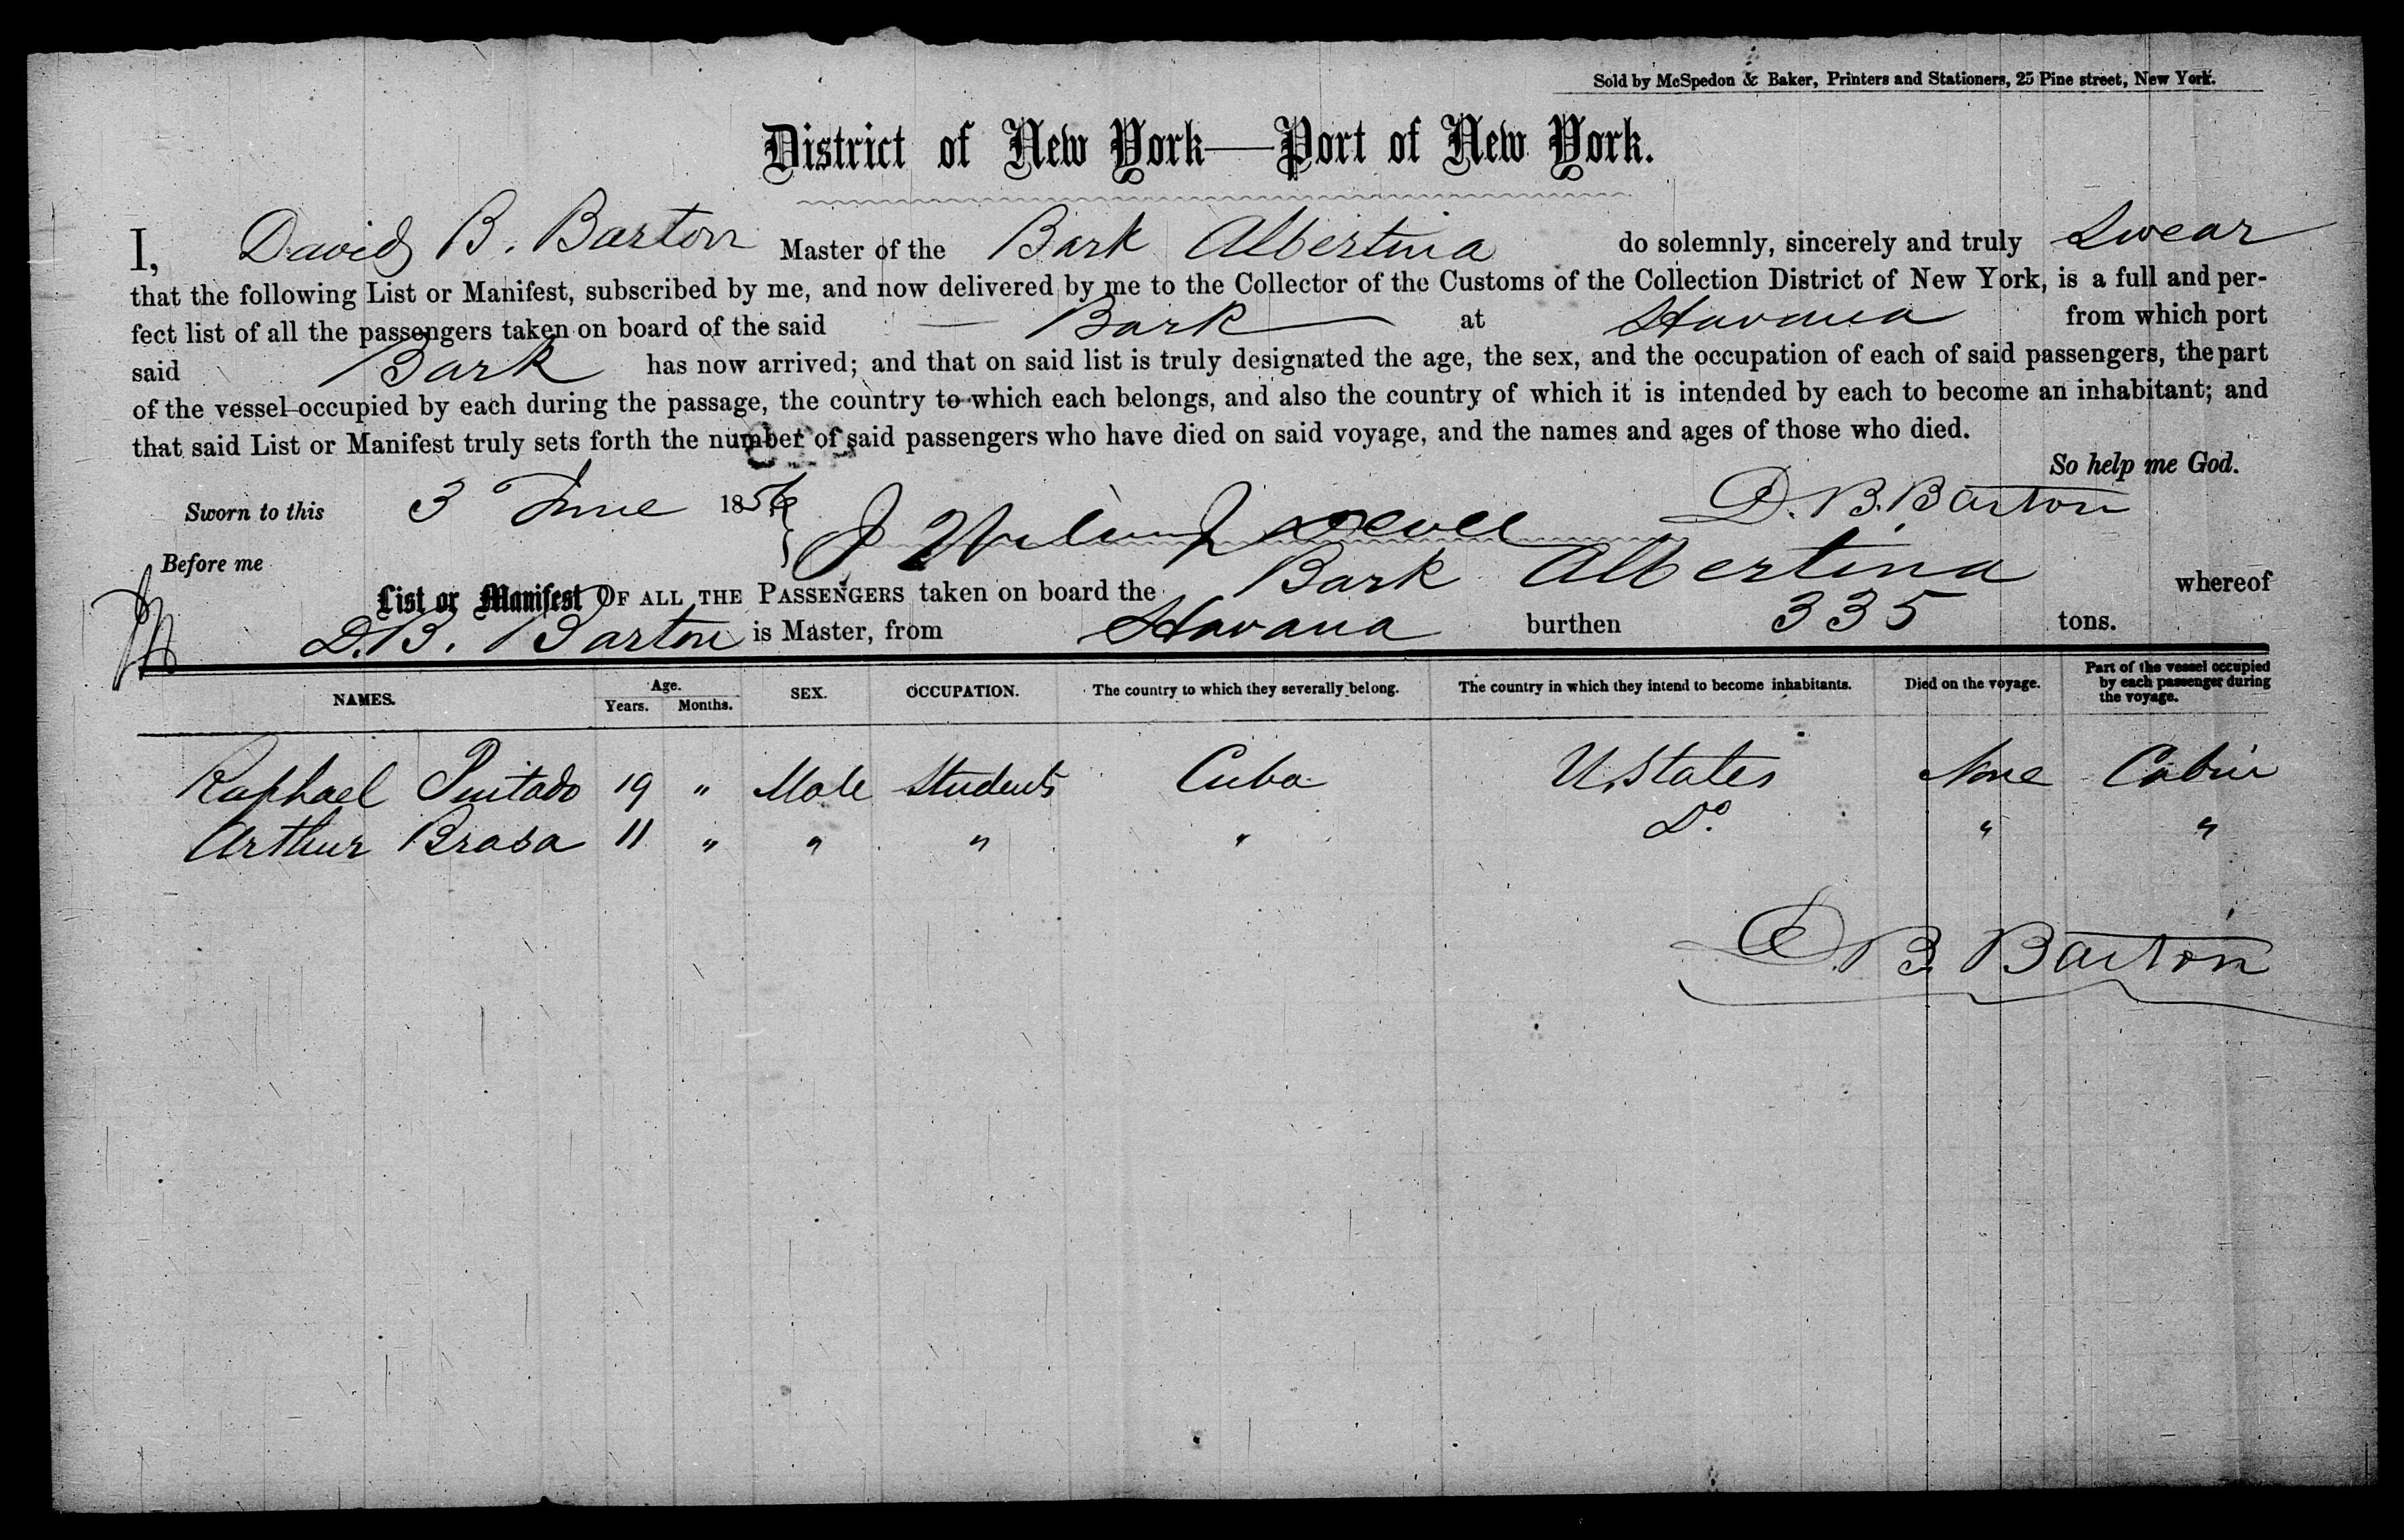 Sold by McSpedon & Baker, Printers and Stationers, 25 Pine street, New York.
District of New York—Port of New York.
I, David B. Barton Master of the Bark Albertina do solemnly, sincerely and truly Swear
that the following List or Manifest, subscribed by me, and now delivered by me to the Collector of the Customs of the Collection District of New York, is a full and per-
fect list of all the passengers taken on board of the said Bark at Havana from which port
said Bark has now arrived; and that on said list is truly designated the age, the sex, and the occupation of each of said passengers, the part
of the vessel occupied by each during the passage, the country to which each belongs, and also the country of which it is intended by each to become an inhabitant; and
that said List or Manifest truly sets forth the number of said passengers who have died on said voyage, and the names and ages of those who died.
So help me God.
Sworn to this 3 June 1856 D. B. Barton
Before me
List or Manifest OF ALL THE PASSENGERS taken on board the Bark Albertina whereof
D.B. Barton is Master, from Havana burthen 335 tons.
NAMES. Age. Years. Months. SEX. OCCUPATION. The country to which they severally belong. The country in which they intend to become inhabitants. Died on the voyage. Part of the vessel occupied by each passenger during the voyage.
Raphael 19 " Male Students Cuba U. States None Cabin
Arthur Brasa 11 " " " " Do. " "
D. B. Barton